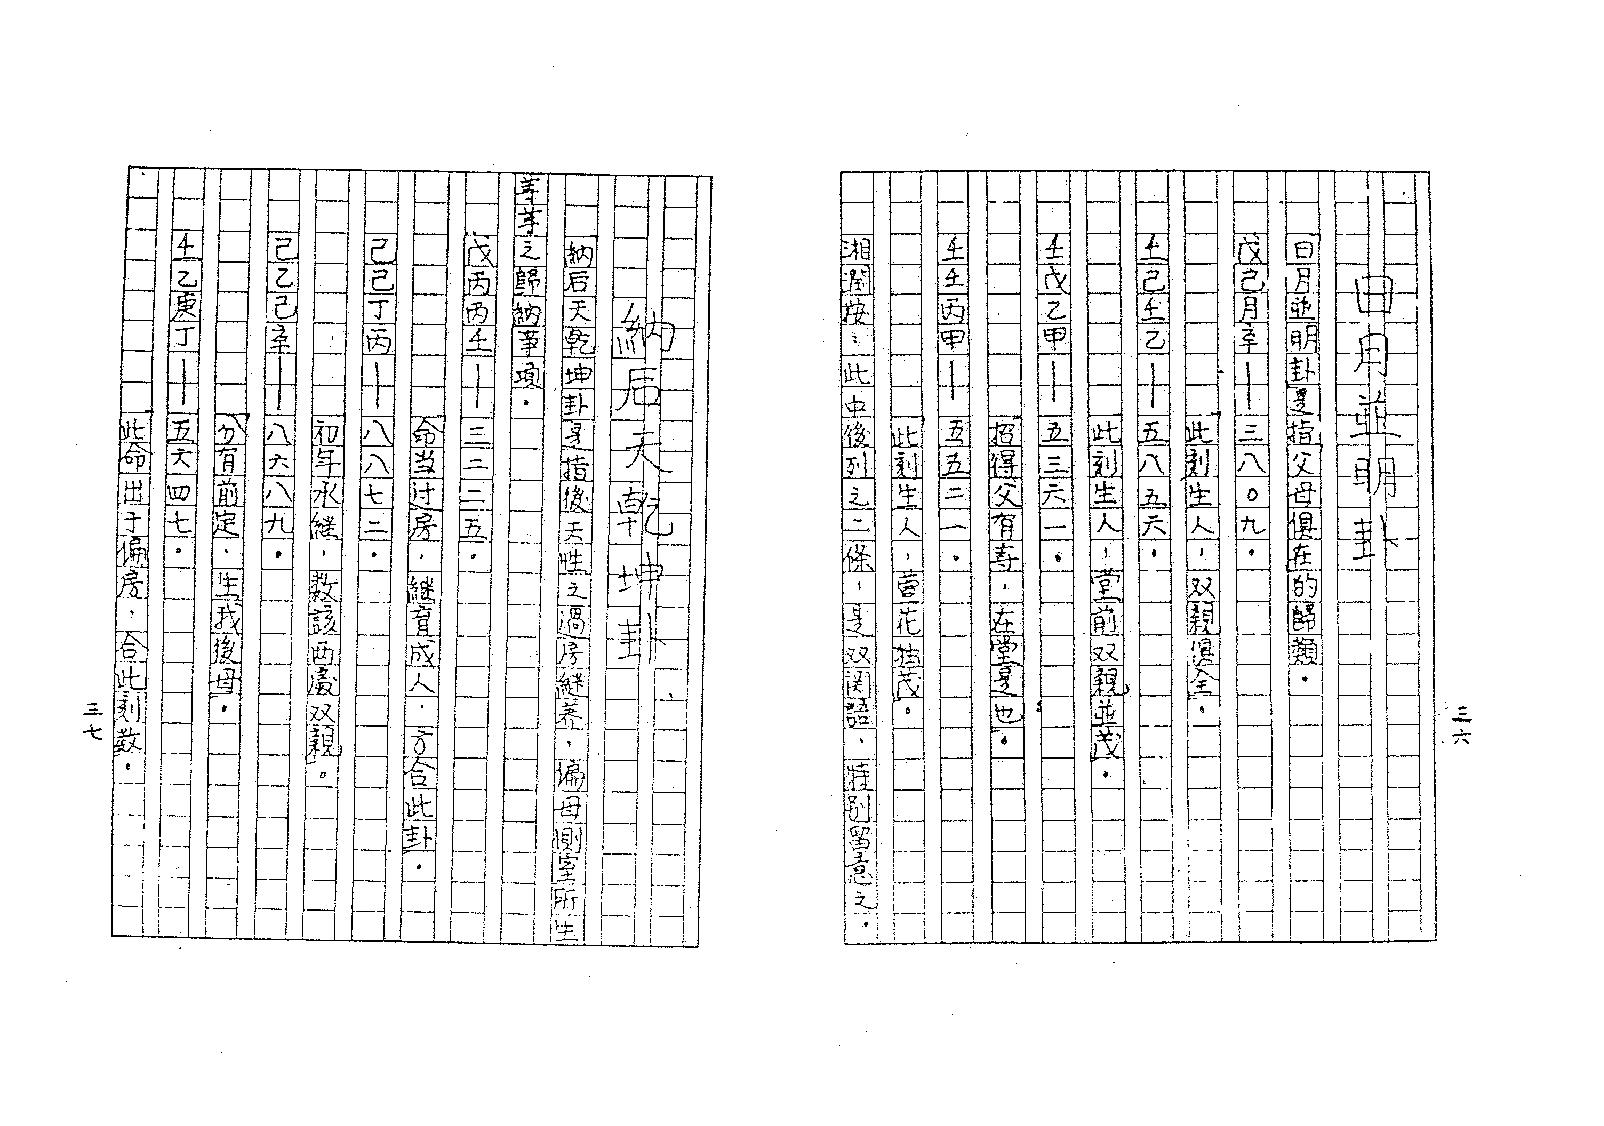 日月並明卦
日月並明卦是指父母俱在的歸類.
戊己月辛——三八〇九.
此刻生人,双親俱全.
壬己壬乙——五八五六.
此刻生人,堂前双親並茂.
壬戊乙甲——五三六一.
招得父有寿.在堂是也.
壬壬丙甲——五五二一.
此刻生人,萱花独茂.
湘潤按:此中後列之二條,是双関語.特別留意之.
三六
納后天乾坤卦
納后天乾坤卦是指後天性之過房継养.偏母側室所生
等等之歸納事項.
戊丙丙壬——三二二五.
命当过房.継育成人.方合此卦.
己己丁丙——八八七二.
初年承継,数該两歲双親。
己乙己辛——八六八九.
分有前定.生我後母.
壬乙庚丁——五六四七.
此命出于偏房,合此刻数.
三七